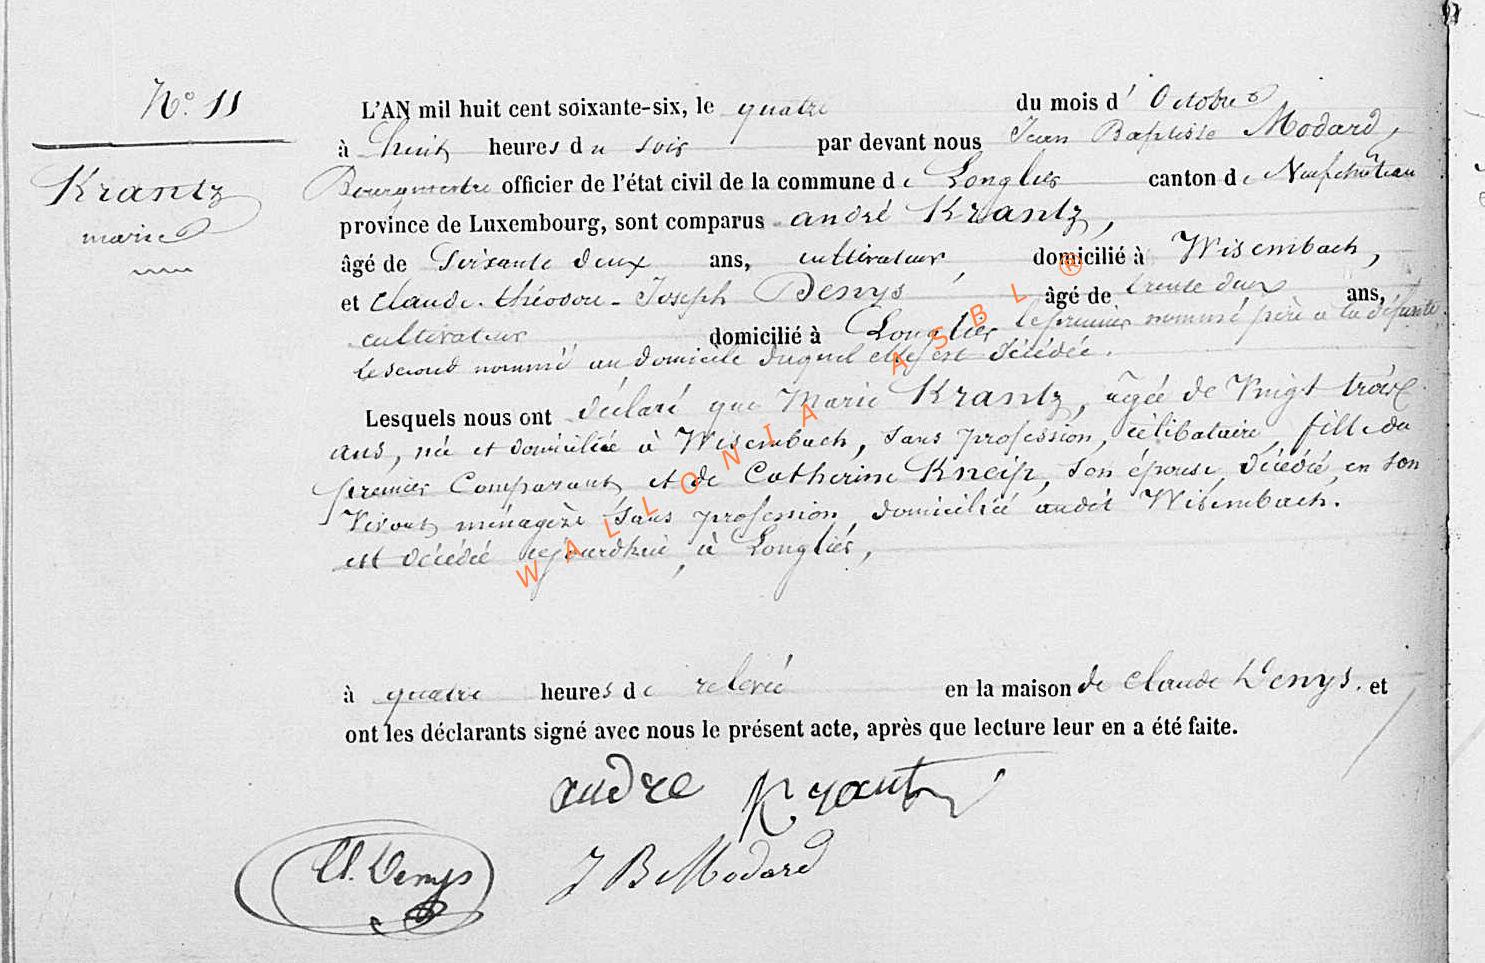 N.° 11
Krantz
marie
L'AN mil huit cent soixante-six, le quatre du mois d' Octobre
à huit heures du soir par devant nous Jean Baptiste Modard,
Bourgmestre officier de l'état civil de la commune de Longlier canton de Neufchâteau
province de Luxembourg, sont comparus andré Krantz,
âgé de Soixante deux ans, cultivateur, domicilié à Wisembach,
et Claude-théodore-Joseph Denys âgé de trente deux ans,
cultivateur domicilié à Longlier le premier nommé père à la défunte,
le second nommé au domicile duquel elle est décédée.
Lesquels nous ont déclaré que Marie Krantz, âgée de Vingt trois
ans, née et domiciliée à Wisembach, sans profession, célibataire, fille du
premier Comparant et de Catherine Kneip, son épouse, décédée, en son
Vivant ménagère sans profession, domiciliée audit Wisembach.
est décédée aujourdhui, à Longlier,
à quatre heures de relevée en la maison de Claude Denys. et
ont les déclarants signé avec nous le présent acte, après que lecture leur en a été faite.
andre Krantz
Cl. Denys
J B Modard
WALLONIA ASBL ®